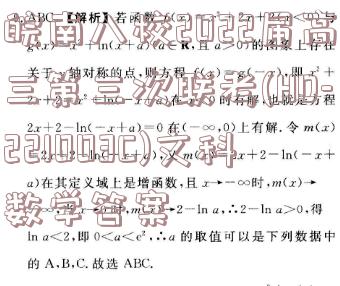 ABC 【解析】若函数 f(x)=x²+2x+2(x<0)与
g(x)=x²+ln(x+a)(a∈R,且a>0)的图象上存在
关于y轴对称的点,则方程 f(x)=g(-x),即x²+
在 时有解,也就是方程
2x+2-ln(-x+a)=0在(-∞,0)上有解.令m(x)
2x+2-ln(-x+
a)在其定义域上是增函数,且x→-∞时,m(x)→
2-ln a,∴2-ln a>0,得
ln a<2,即0<a<e²,∴a的取值可以是下列数据中
的A,B,C.故选ABC.
皖南八校2022届高
三第三次联考(HD-
221003C)文科
数学答案